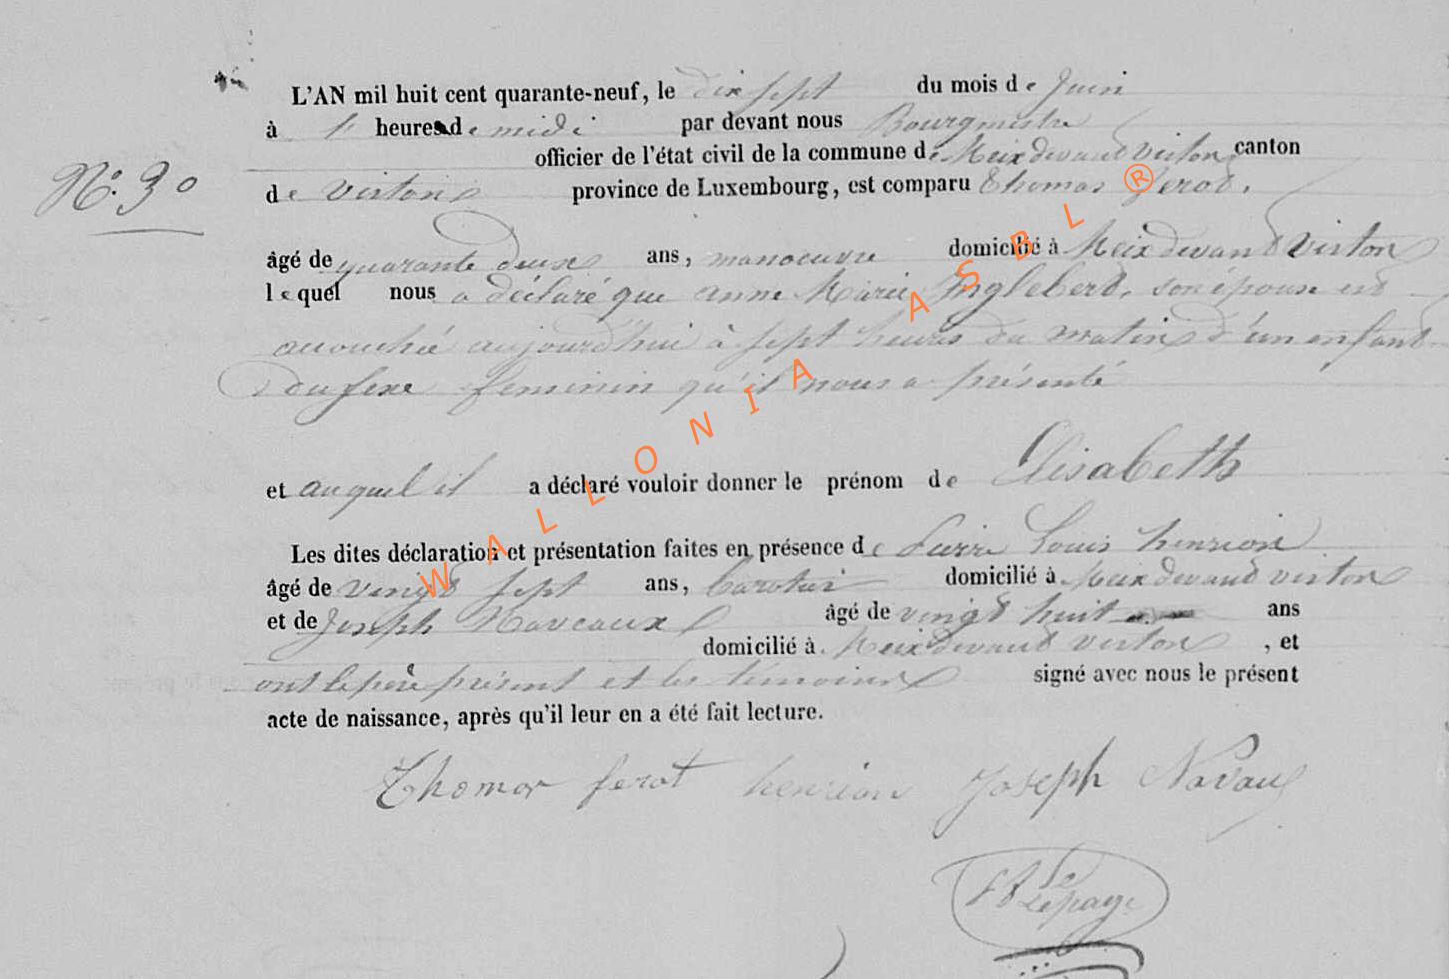 L'AN mil huit cent quarante-neuf, le dix sept du mois de Juin
à 1 heures de midi par devant nous Bourgmestre
officier de l'état civil de la commune de Meix devant virton canton
N°. 30
de virton province de Luxembourg, est comparu Thomas ferot,
âgé de quarante deux ans, manoeuvre domicilié à Meix devant Virton
lequel nous a déclaré que anne Marie Inglebert, son épouse est
accouchée aujourd'hui à sept heures du matin d'un enfant
du sexe feminin qu'il nous a présenté
et auquel il a déclaré vouloir donner le prénom de Elisabeth
Les dites déclaration et présentation faites en présence de Pierre Louis henrion
âgé de vingt sept ans, domicilié à Meix devant virton
et de Joseph Naveaux âgé de vingt huit ans
domicilié à Meix devant virton, et
ont le père présent et les témoins signé avec nous le présent
acte de naissance, après qu'il leur en a été fait lecture.
Thomas ferot henrion Joseph Navau
Lepage
WALLONIA ASBL ®